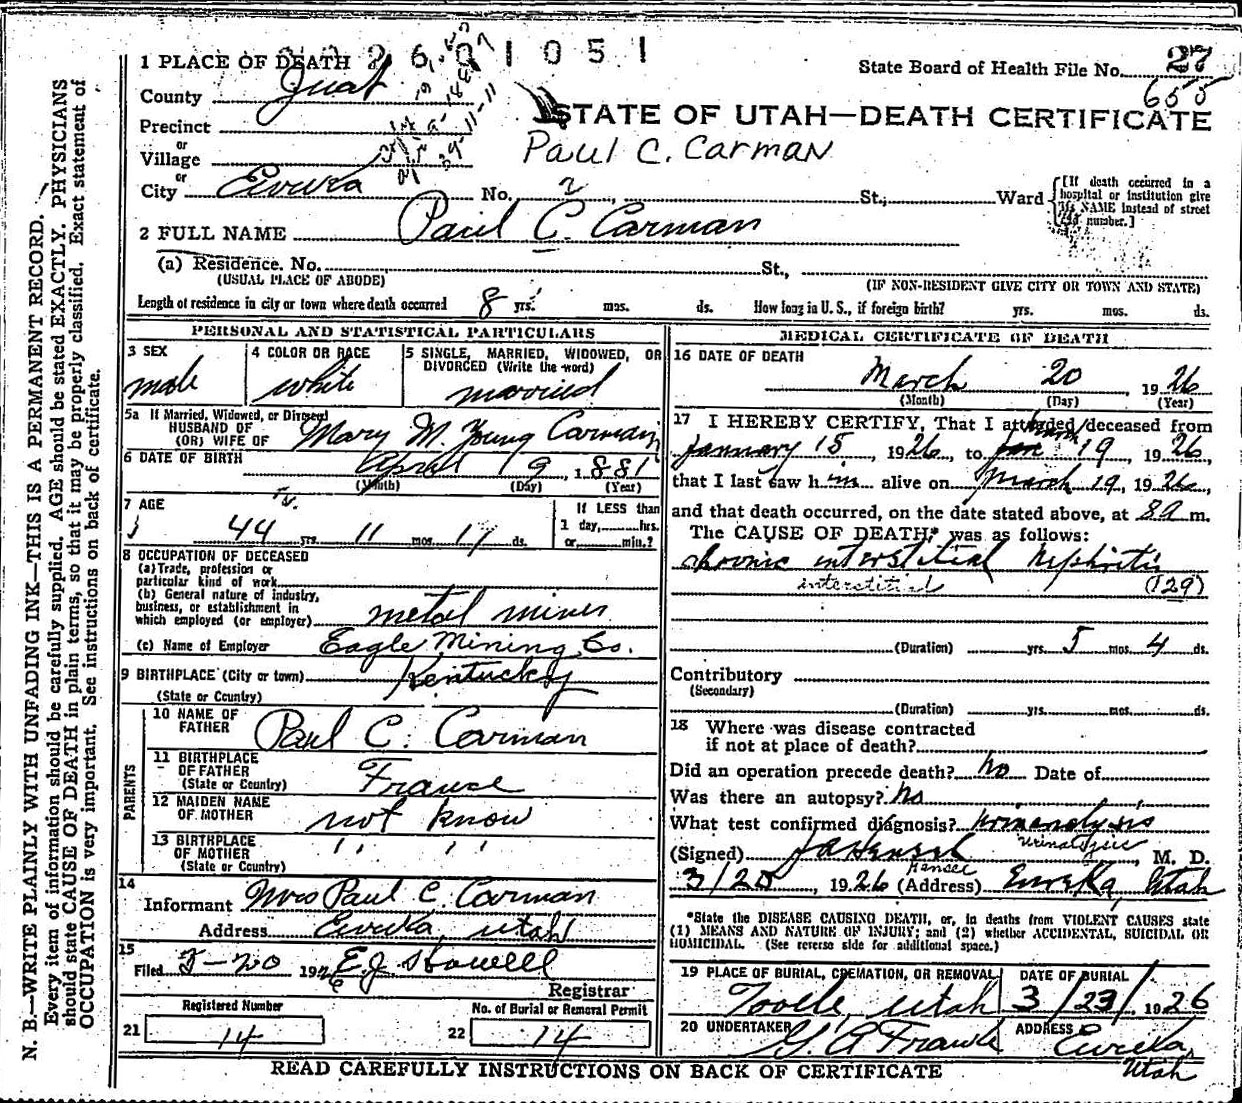 2601051
1 PLACE OF DEATH
State Board of Health File No. 27
655
County Juab
STATE OF UTAH—DEATH CERTIFICATE
Precinct
or
Village
Paul C. Carman
or
City Eureka No. 2 St.; Ward
[If death occurred in a hospital or institution give its NAME instead of street and number.]
2 FULL NAME Paul C. Carman
(a) Residence. No. St.,
(USUAL PLACE OF ABODE) (IF NON-RESIDENT GIVE CITY OR TOWN AND STATE)
Length of residence in city or town where death occurred 8 yrs. mos. ds. How long in U. S., if foreign birth? yrs. mos. ds.
PERSONAL AND STATISTICAL PARTICULARS
3 SEX male
4 COLOR OR RACE white
5 SINGLE, MARRIED, WIDOWED, OR DIVORCED (Write the word) married
5a If Married, Widowed, or Divorced
HUSBAND OF
(OR) WIFE OF Mary M. Young Carman
6 DATE OF BIRTH April 9, 1881
(Month) (Day) (Year)
7 AGE 44 yrs. 11 mos. 11 ds.
If LESS than
1 day, hrs.
or, min.?
8 OCCUPATION OF DECEASED
(a) Trade, profession or
particular kind of work
(b) General nature of industry,
business, or establishment in
which employed (or employer) metal miner
(c) Name of Employer Eagle Mining Co.
9 BIRTHPLACE (City or town) Kentucky
(State or Country)
PARENTS
10 NAME OF
FATHER Paul C. Carman
11 BIRTHPLACE
OF FATHER
(State or Country) France
12 MAIDEN NAME
OF MOTHER not know
13 BIRTHPLACE
OF MOTHER " "
(State or Country)
14
Informant Mrs Paul C. Carman
Address Eureka, Utah
15
Filed 3-20 1926 E. J. Howell
Registrar
Registered Number
21 14
No. of Burial or Removal Permit
22 14
MEDICAL CERTIFICATE OF DEATH
16 DATE OF DEATH
March 20, 1926
(Month) (Day) (Year)
17 I HEREBY CERTIFY, That I attended deceased from
January 15, 1926, to March 19, 1926,
that I last saw him alive on March 19, 1926,
and that death occurred, on the date stated above, at 8a m.
The CAUSE OF DEATH* was as follows:
chronic interstitial Nephritis
interstitial (129)
(Duration) yrs. 5 mos. 4 ds.
Contributory
(Secondary)
(Duration) yrs. mos. ds.
18 Where was disease contracted
if not at place of death?
Did an operation precede death? No Date of
Was there an autopsy? No
What test confirmed diagnosis? Urinanalysis
(Signed) M. D.
3/20, 1926 (Address) Eureka, Utah
*State the DISEASE CAUSING DEATH, or, in deaths from VIOLENT CAUSES state
(1) MEANS AND NATURE OF INJURY; and (2) whether ACCIDENTAL, SUICIDAL OR
HOMICIDAL. (See reverse side for additional space.)
19 PLACE OF BURIAL, CREMATION, OR REMOVAL Tooele, Utah
DATE OF BURIAL 3/23/, 1926
20 UNDERTAKER
ADDRESS Eureka, Utah
READ CAREFULLY INSTRUCTIONS ON BACK OF CERTIFICATE
N. B.—WRITE PLAINLY WITH UNFADING INK—THIS IS A PERMANENT RECORD.
Every item of information should be carefully supplied. AGE should be stated EXACTLY. PHYSICIANS
should state CAUSE OF DEATH in plain terms, so that it may be properly classified. Exact statement of
OCCUPATION is very important. See instructions on back of certificate.